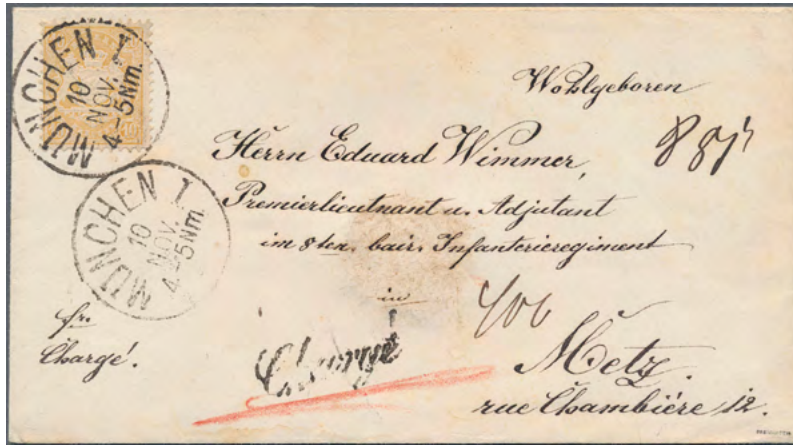 MÜNCHEN I.
10
NOV.
4-5Nm.
MÜNCHEN I.
10
NOV.
4-5Nm.
Wohlgeboren
Herrn Eduard Wimmer,
Premierlieutnant u. Adjutant
im 8ten. bair. Infanterieregiment
in
Metz.
rue Chambiére 12.
fr.
Chargé.
Chargé